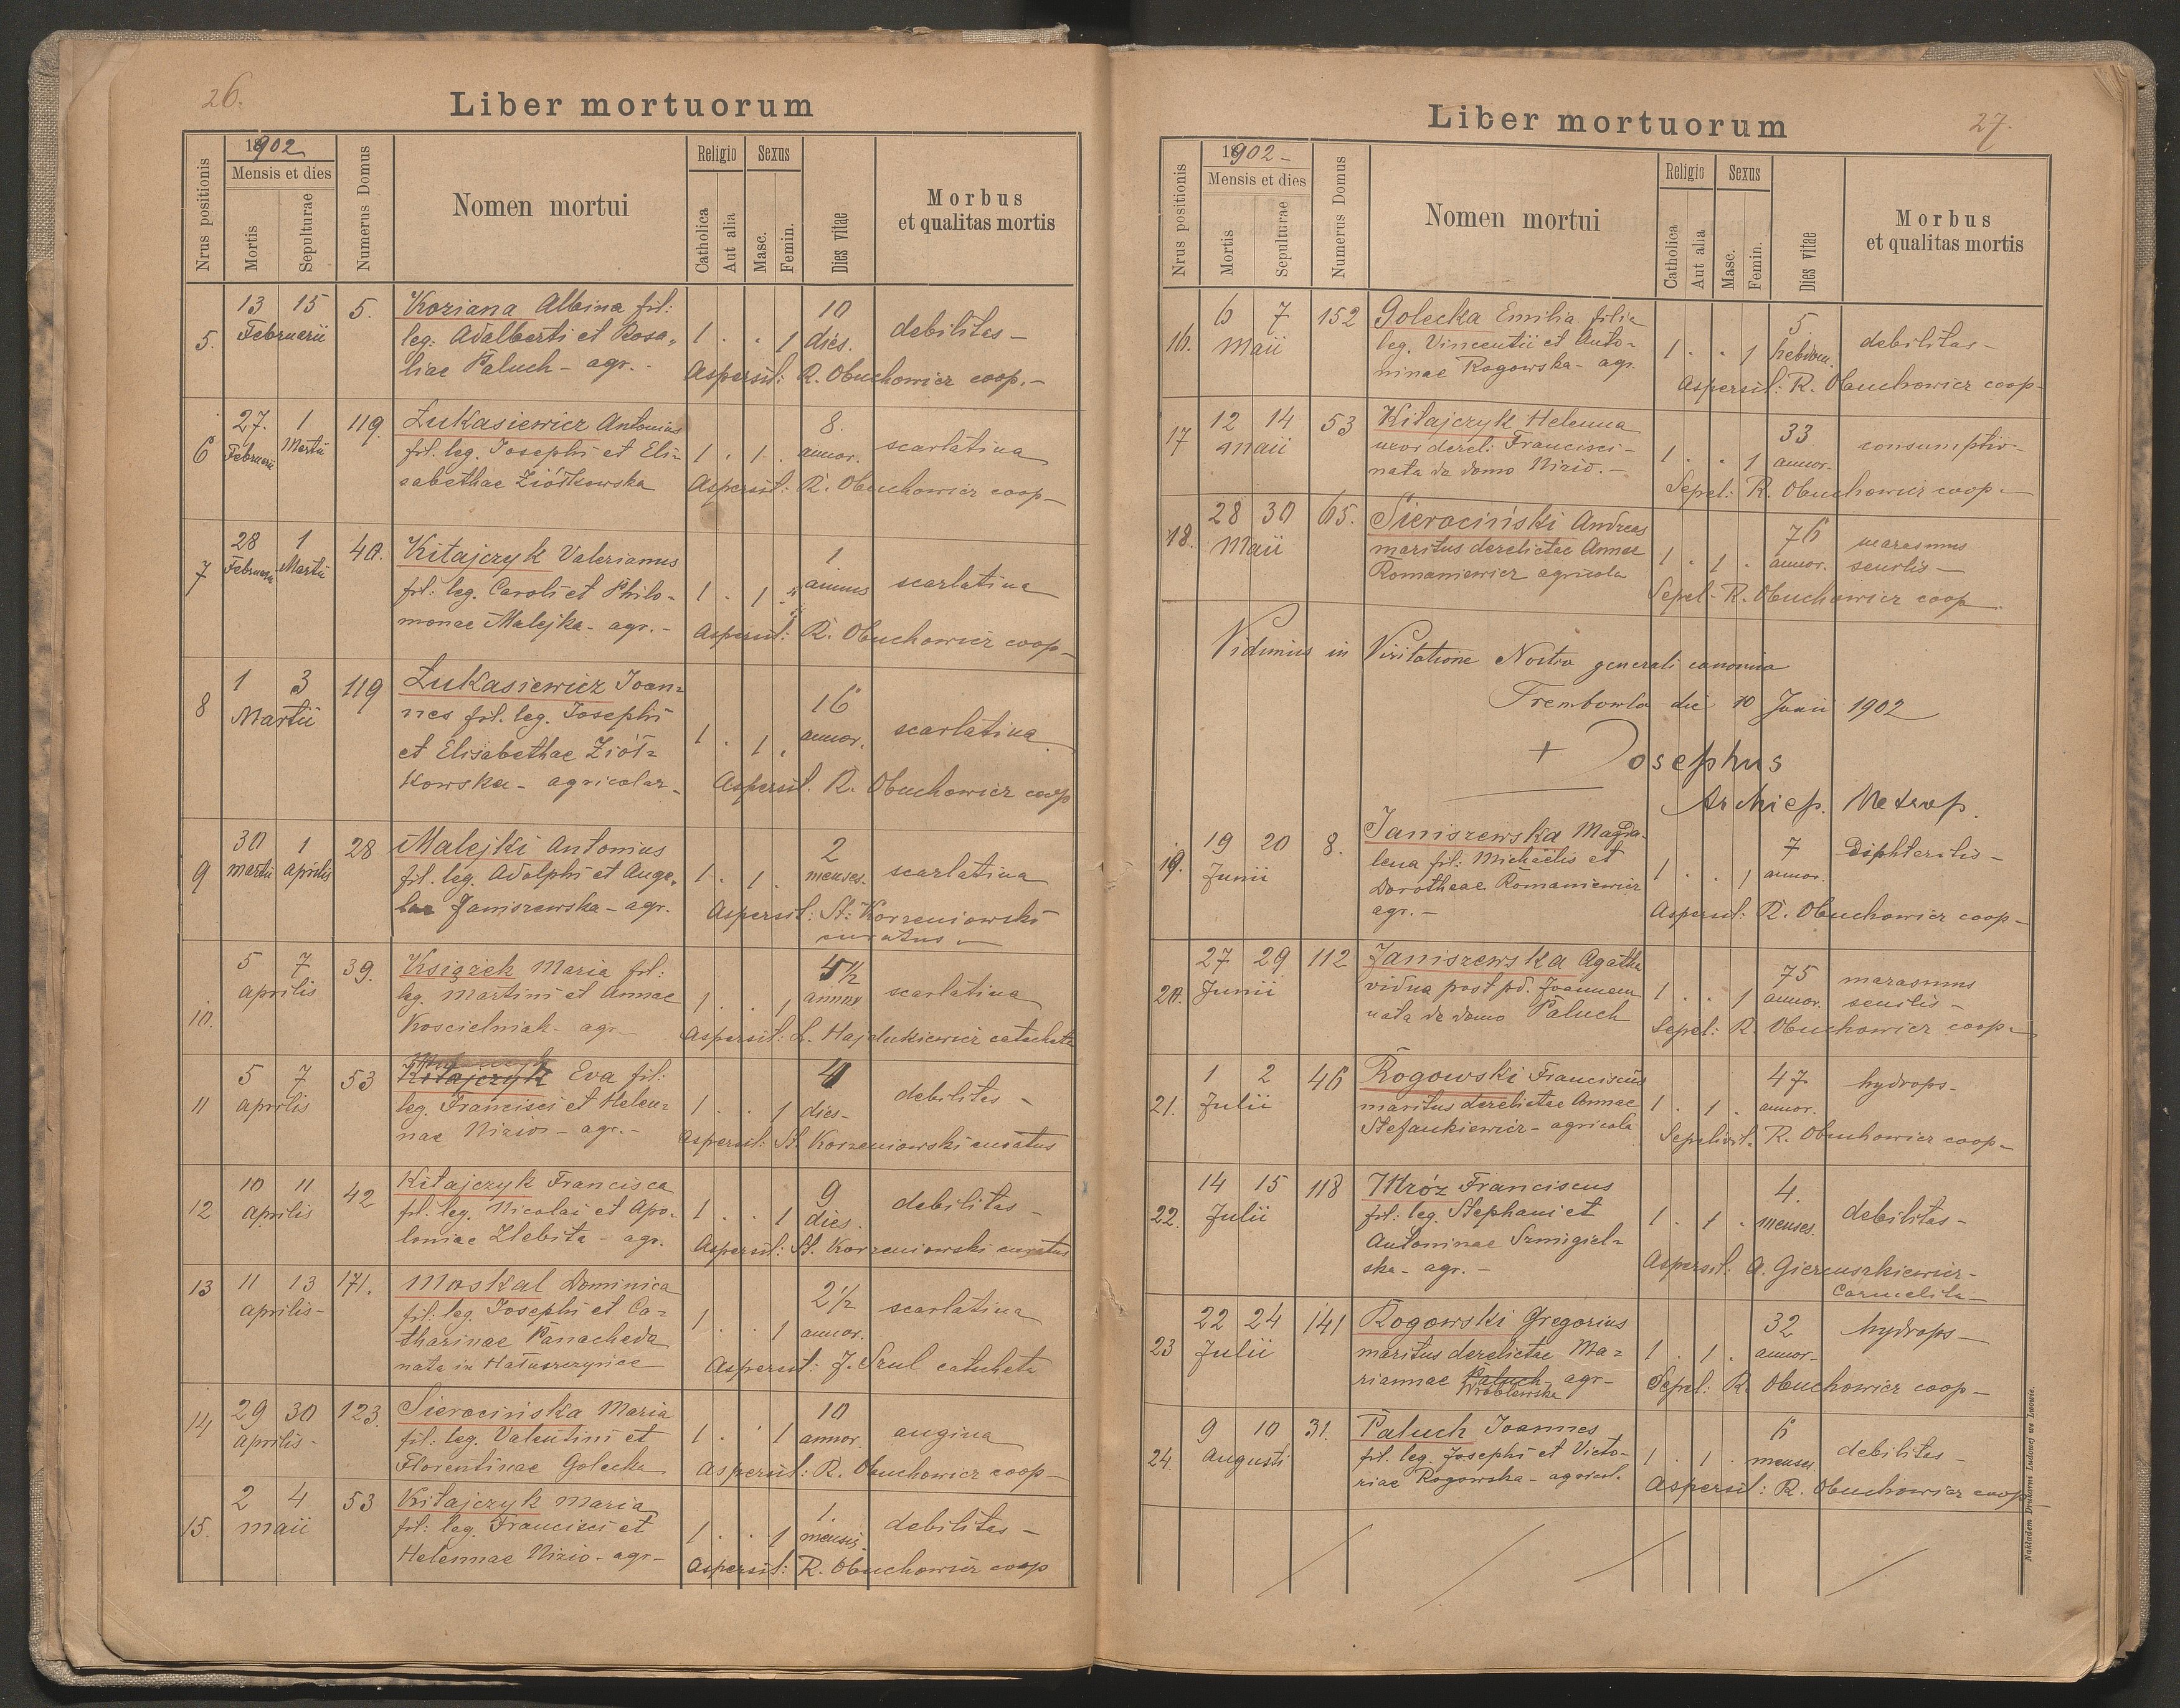 26.
Liber mortuorum
Nrus positionis
18902
Mensis et dies
Mortis
Sepulturae
Numerus Domus
Nomen mortui
Religio
Catholica
Aut alia
Sexus
Masc.
Femin.
Dies vitae
Morbus
et qualitas mortis
5.
13 15
Februarii
5.
Koziana Albina fil:
leg: Adalberti et Rosa„
liae Paluch - agr. -
1 . . 1
10
dies.
debilitas -
Aspersit: R. Obuchowicz coop. -
6
27. 1
Februarii Martii
119
Łukasiewicz Antonius
fil. leg. Josephi et Eli=
sabethae Ziółkowska
1 . 1 .
8.
annor.
scarlatina
Aspersit: R. Obuchowicz coop -
7
28 1
Februarii Martii
40.
Kitajczyk Valerianus
fil: leg. Caroli et Philo-
monae Malejka - agr. -
1 . 1
1
annus
scarlatina
Aspersit: R. Obuchowicz coop -
8
1 3
Martii
119
Łukasiewicz Joan=
nes fil. leg. Josephi
et Elisabethae Ziół=
kowska - agricolar -
1 . 1 .
16
annor.
scarlatina
Aspersit. R. Obuchowicz coop
9
30 1
martii aprilis
28
Malejki Antonius
fil. leg. Adolphi et Ange„
lae Janiszewska - agr.
1 . 1 .
2
menses.
scarlatina
Aspersit: St: Korzeniowski
curatus -
10.
5 7
aprilis
39.
Książek Maria fil:
leg. Martini et Annae
Koscielniak - agr -
1 . . 1
4½
scarlatina
Aspersit: L. Hajdukiewicz catecheta
11
5 7
aprilis
53
Kitajczyk Eva fil:
leg. Francisci et Helen=
nae Nizio - agr. -
1 . . 1
4
dies -
debilitas -
Aspersit: St. Korzeniowski curatus
12
10 11
aprilis
42
Kitajczyk Francisca
fil. leg. Nicolai et Apo-
loniae Zlebita - agr.
1 . . 1
9
dies.
debilitas -
Aspersit: St. Korzeniowski curatus
13
11 13
aprilis -
171.
Moskal Dominica
fil: leg. Josephi et Ca=
tharinae Panacheda
nata in Hałuszczyńce
1 . . 1
2½
annor.
scarlatina
Aspersit: J. Szul catecheta
14
29 30
aprilis -
123.
Sierocińska Maria
fil: leg. Valentini et
Florentinae Golecka
1 . . 1
10
annor
angina
Aspersit: R. Obuchowicz coop -
15.
2 4
maii
53
Kitajczyk Maria
fil: leg. Francisci et
Helennae Nizio - agr -
1 . . 1
1.
mensis.
debilitas -
Aspersit: R. Obuchowicz coop
27.
Liber mortuorum
Nrus positionis
18902 -
Mensis et dies
Mortis
Sepulturae
Numerus Domus
Nomen mortui
Religio
Catholica
Aut alia
Sexus
Masc.
Femin.
Dies vitae
Morbus
et qualitas mortis
16.
6 7
Maii
152
Golecka Emilia filia
leg. Vincentii et Anto-
ninae Rogowska - agr
1 . . 1
5
hebdom.
debilitas -
Aspersit: R. Obuchowicz coop -
17
12 14
maii
53
Kitajczyk Helenna
uxor derel: Francisci -
nata de domo Nizio. -
1 . . 1
33
annor -
consumptio -
Sepel: R. Obuchowicz coop -
18.
28 30
Maii
65.
Sierociński Andreas
maritus derelictae Annae
Romaniewicz agricola
1 . 1 .
76
annor.
marasmus
senilis -
Sepel - R. Obuchowicz coop.
Vidimus in Visitatione Nostra generali canonica
Trembowla die 10 Junii 1902
+ Josephus
Archiep. Metrop.
19.
19 20
Junii
8.
Janiszewska Magda-
lena fil: Michaelis et
Dorotheae Romaniewicz
agr. -
1 . . 1
7
annor.
Diphteritis -
Aspersit: R. Obuchowicz coop -
20.
27 29
Junii
112
Janiszewska Agatha
vidua post pd. Joannem
nata de domo Paluch
1 . . 1
75
annor.
marasmus
senilis -
Sepel: R. Obuchowicz coop -
21.
1 2
Julii
46
Rogowski Franciscus
maritus derelictae Annae
Stefankiewicz - agricola
1 . 1 .
47
annor.
hydrops -
Sepelivit. R. Obuchowicz coop -
22.
14 15
Julii
118
Mróz Franciscus
fil: leg. Stephani et
Antoninae Szmigiel=
ska - agr. -
1 . 1 .
4.
menses.
debilitas -
Aspersit: A. Gierenszkiewicz -
Carmelita -
23
22 24
Julii
141
Rogowski Gregorius
maritus derelictae Ma=
riannae Paluch - agr -
Wróblewska
1 . 1 .
32
annor -
hydrops -
Sepel: R. Obuchowicz coop -
24.
9 10
Augusti
31.
Paluch Joannes
fil. leg. Josephi et Victo-
riae Rogowska - agricol.
1 . 1 .
6
menses.
debilitas -
Aspersit: R. Obuchowicz coop
Nakładem Drukarni Ludowej we Lwowie.